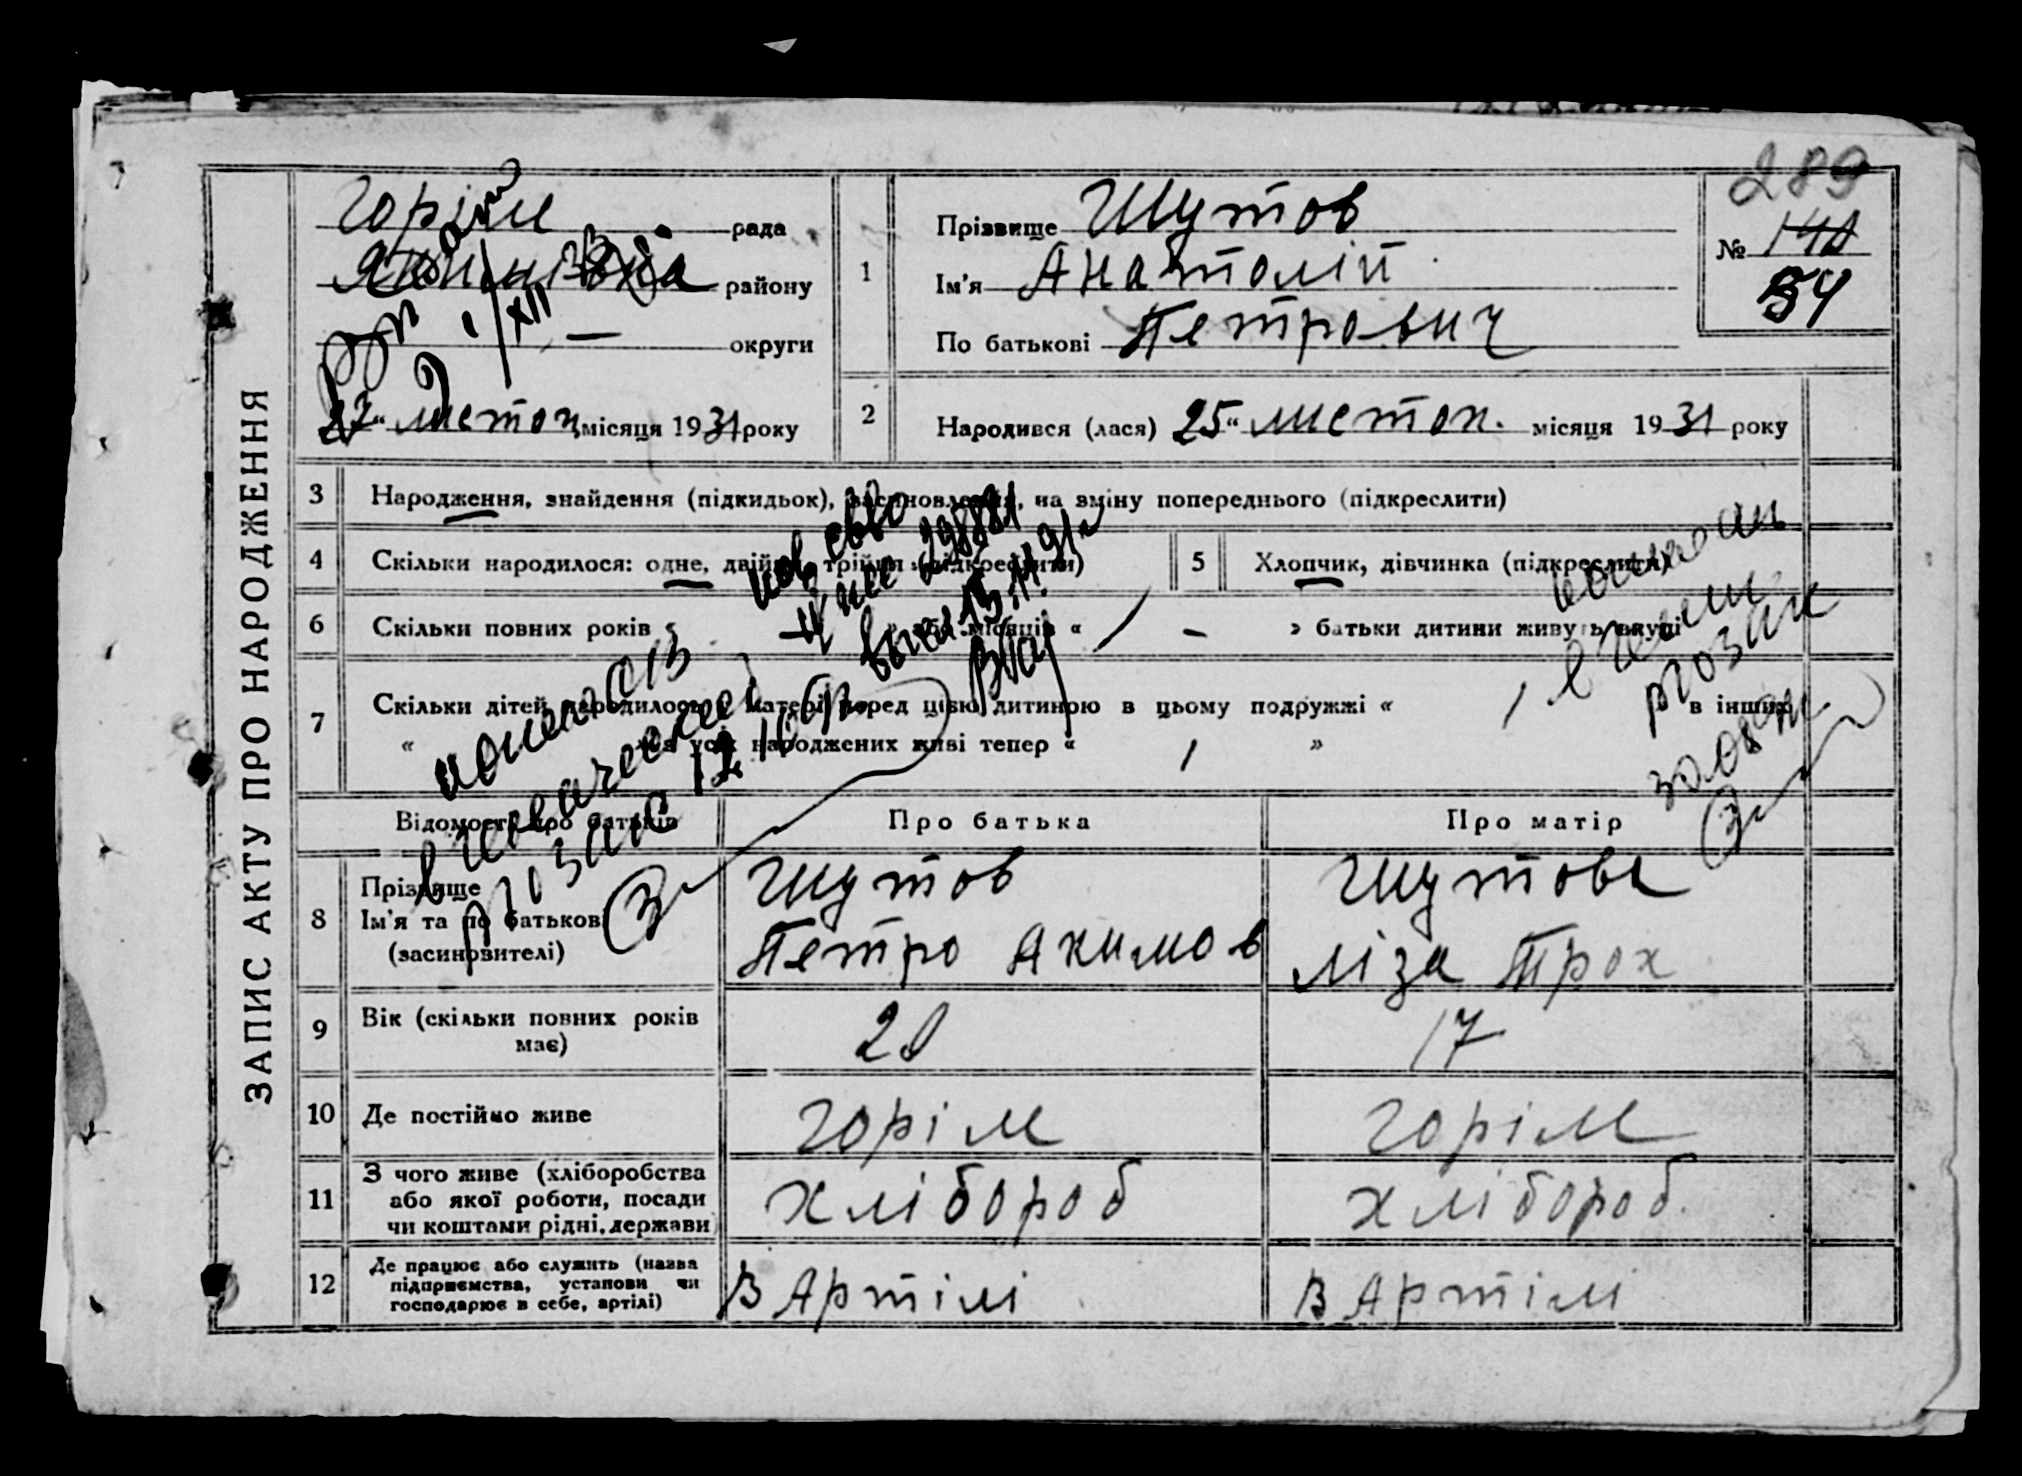 289
Горіле рада
району
— округи
27" листоп місяця 1931 року
ЗАПИС АКТУ ПРО НАРОДЖЕННЯ
1
Прізвище Шутов
Ім'я Анатолій
По батькові Петрович
№ 140
54
2 Народився (лася) 25 "листоп. місяця 1931 року
3 Народження, знайдення (підкидьок), засиновлення, на зміну попереднього (підкреслити)
4 Скільки народилося: одне, двійня, трійня (підкреслити)
5 Хлопчик, дівчинка (підкреслити)
6 Скільки повних років « » або місяців « — » батьки дитини живуть вкупі
7 Скільки дітей народилось у матері перед цією дитиною в цьому подружжі « в інших
« усіх народжених живі тепер « »
12 10
Відомості про батьків
Про батька
Про матір
8 Прізвище
Ім'я та по батькові
(засиновителі)
Шутов
Петро Акимов
Шутова
Ліза Трох
9 Вік (скільки повних років
має)
20
17
10 Де постійно живе
Горіле
Горіле
11 З чого живе (хліборобства
або якої роботи, посади
чи коштами рідні, держави
Хлібороб
хлібороб.
12 Де працює або служить (назва
підприємства, установи чи
господарює в себе, артілі)
В Артілі
В Артілі